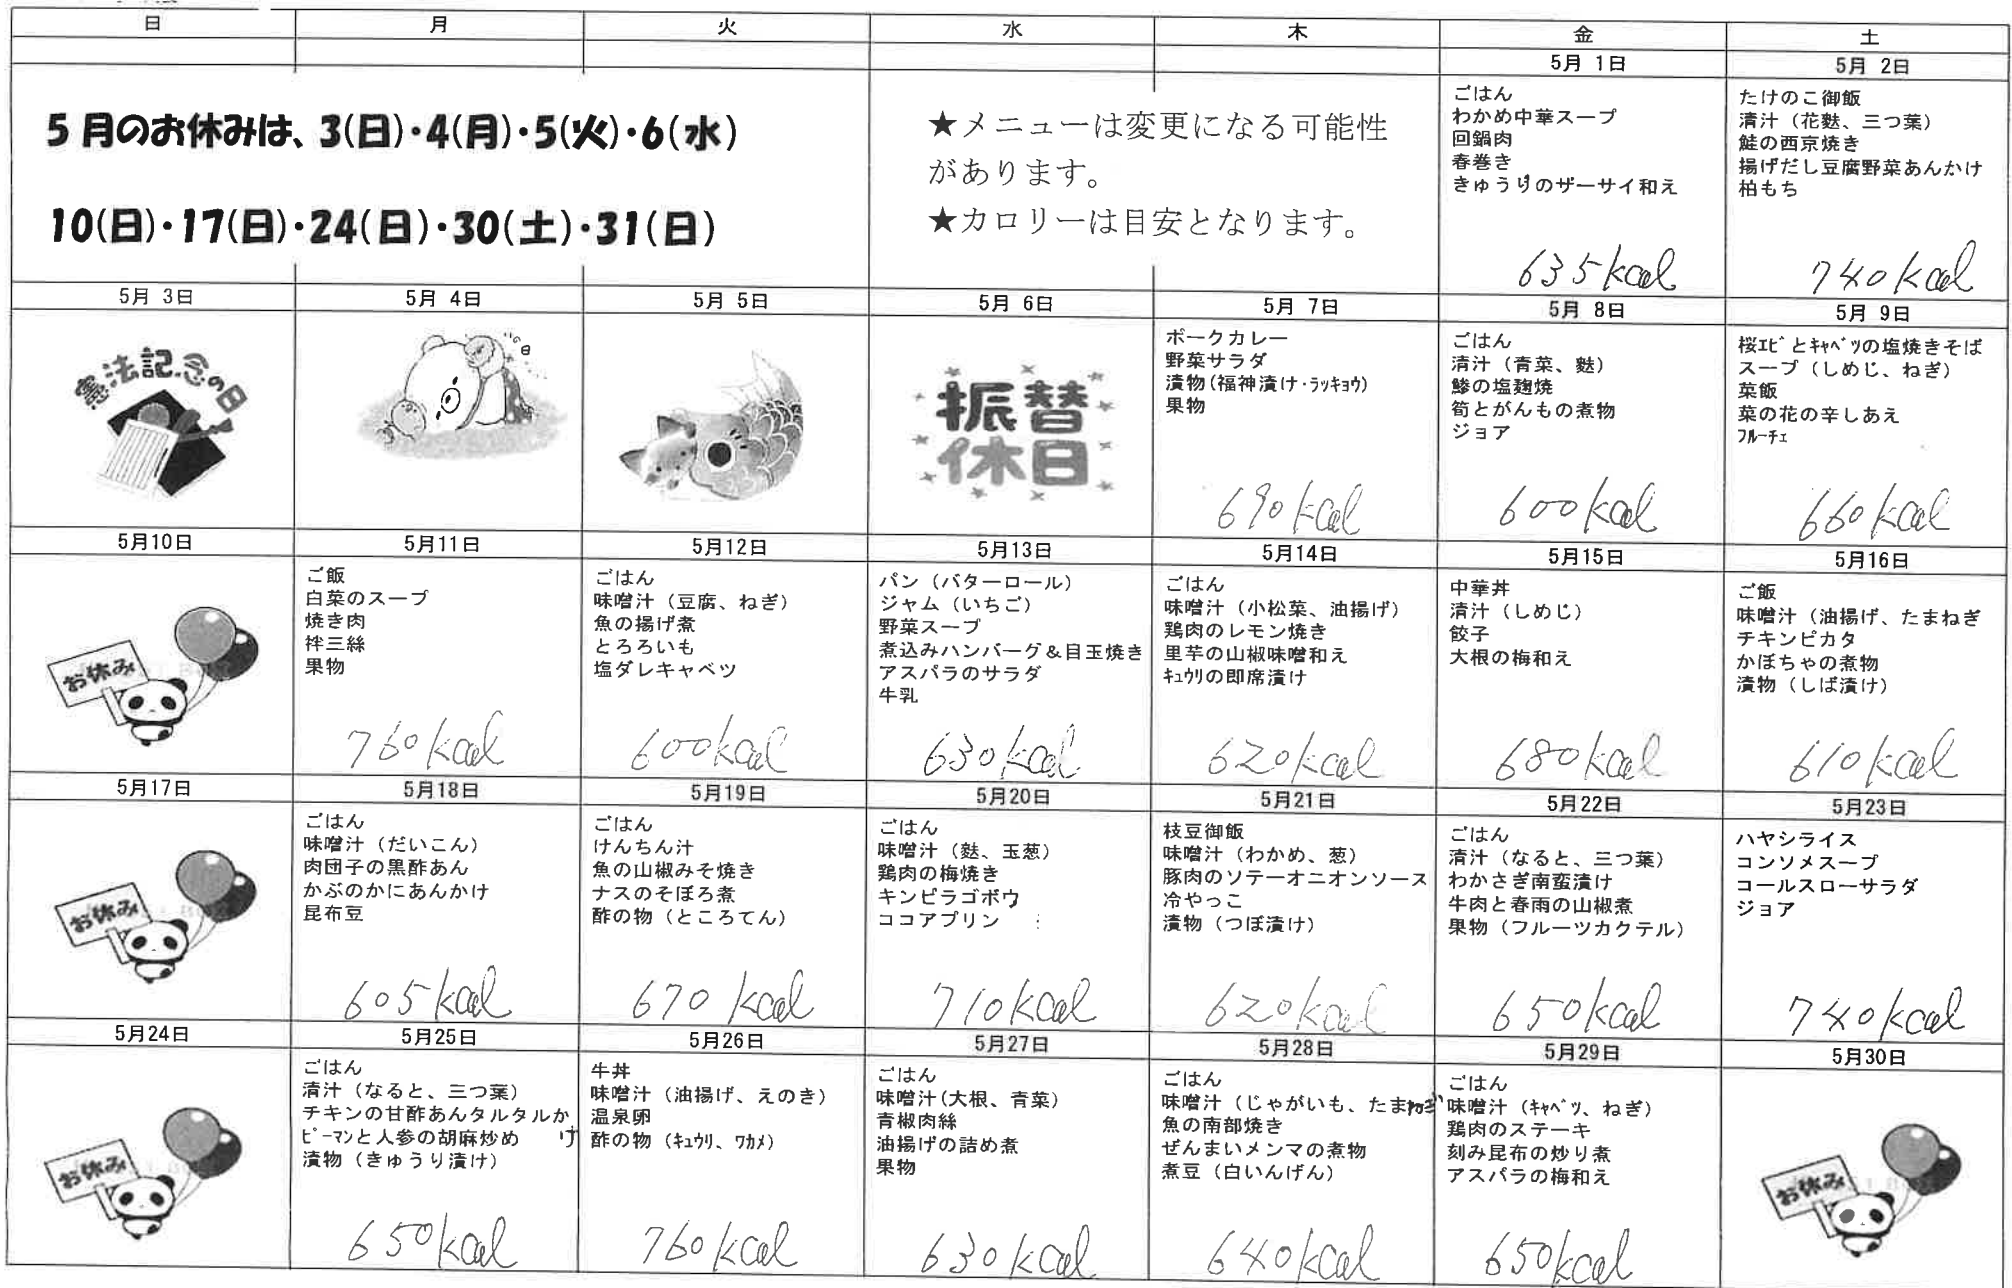 日 月 火 水 木 金 土
5月 1日 5月 2日
5月のお休みは、3(日)・4(月)・5(火)・6(水)
10(日)・17(日)・24(日)・30(土)・31(日)
★メニューは変更になる可能性
があります。
★カロリーは目安となります。
ごはん
わかめ中華スープ
回鍋肉
春巻き
きゅうりのザーサイ和え
635kcal
たけのこ御飯
清汁（花麩、三つ葉）
鮭の西京焼き
揚げだし豆腐野菜あんかけ
柏もち
740kcal
5月 3日 5月 4日 5月 5日 5月 6日 5月 7日 5月 8日 5月 9日
憲法記念の日
の日
振替
休日
ポークカレー
野菜サラダ
漬物(福神漬け・ﾗｯｷｮｳ)
果物
690kcal
ごはん
清汁（青菜、麩）
鯵の塩麹焼
筍とがんもの煮物
ジョア
600kcal
桜ｴﾋﾞとｷｬﾍﾞﾂの塩焼きそば
スープ（しめじ、ねぎ）
菜飯
菜の花の辛しあえ
ﾌﾙｰﾁｪ
660kcal
5月10日 5月11日 5月12日 5月13日 5月14日 5月15日 5月16日
お休み
ご飯
白菜のスープ
焼き肉
拌三絲
果物
760kcal
ごはん
味噌汁（豆腐、ねぎ）
魚の揚げ煮
とろろいも
塩ダレキャベツ
600kcal
パン（バターロール）
ジャム（いちご）
野菜スープ
煮込みハンバーグ＆目玉焼き
アスパラのサラダ
牛乳
630kcal
ごはん
味噌汁（小松菜、油揚げ）
鶏肉のレモン焼き
里芋の山椒味噌和え
ｷｭｳﾘの即席漬け
620kcal
中華丼
清汁（しめじ）
餃子
大根の梅和え
680kcal
ご飯
味噌汁（油揚げ、たまねぎ
チキンピカタ
かぼちゃの煮物
漬物（しば漬け）
610kcal
5月17日 5月18日 5月19日 5月20日 5月21日 5月22日 5月23日
お休み
ごはん
味噌汁（だいこん）
肉団子の黒酢あん
かぶのかにあんかけ
昆布豆
605kcal
ごはん
けんちん汁
魚の山椒みそ焼き
ナスのそぼろ煮
酢の物（ところてん）
670kcal
ごはん
味噌汁（麩、玉葱）
鶏肉の梅焼き
キンピラゴボウ
ココアプリン
710kcal
枝豆御飯
味噌汁（わかめ、葱）
豚肉のソテーオニオンソース
冷やっこ
漬物（つぼ漬け）
620kcal
ごはん
清汁（なると、三つ葉）
わかさぎ南蛮漬け
牛肉と春雨の山椒煮
果物（フルーツカクテル）
650kcal
ハヤシライス
コンソメスープ
コールスローサラダ
ジョア
740kcal
5月24日 5月25日 5月26日 5月27日 5月28日 5月29日 5月30日
お休み
ごはん
清汁（なると、三つ葉）
チキンの甘酢あんタルタルか
け
ﾋﾟｰﾏﾝと人参の胡麻炒め
漬物（きゅうり漬け）
650kcal
牛丼
味噌汁（油揚げ、えのき）
温泉卵
酢の物（ｷｭｳﾘ、ﾜｶﾒ）
760kcal
ごはん
味噌汁(大根、青菜）
青椒肉絲
油揚げの詰め煮
果物
630kcal
ごはん
味噌汁（じゃがいも、たまねぎ
魚の南部焼き
ぜんまいメンマの煮物
煮豆（白いんげん）
640kcal
ごはん
味噌汁（ｷｬﾍﾞﾂ、ねぎ）
鶏肉のステーキ
刻み昆布の炒り煮
アスパラの梅和え
650kcal
お休み